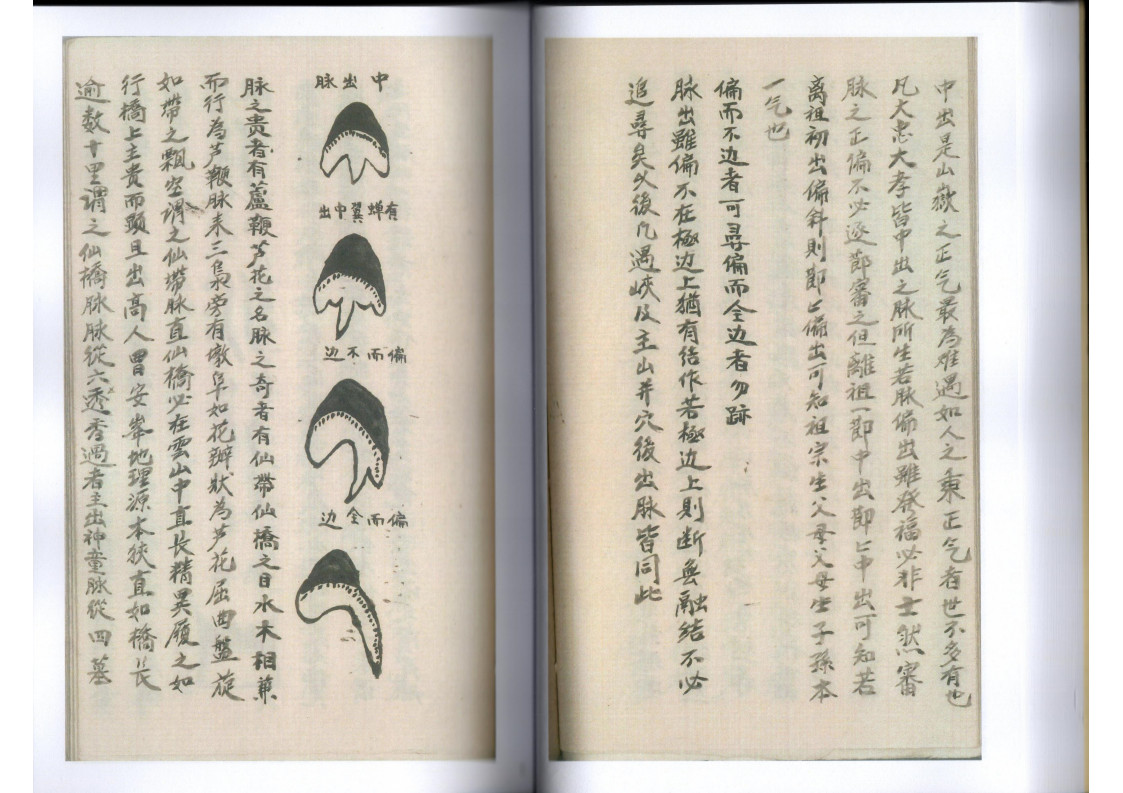 中出是山嶽之正气最為难遇如人之秉正气者世不多有也
凡大忠大孝皆中出之脉所生若脉偏出雖發福必非士然審
脉之正偏不必逐節審之但離祖一節中出節〻中出可知若
离祖初出偏斜則節〻偏出可知祖宗生父母父母生子孫本
一气也
偏而不边者可尋偏而全边者勿跡
脉出雖偏不在極边上猶有结作若極边上則断無融结不必
追尋矣父後凡遇峽及主山并穴後出脉皆同此
中出脉
有蝉翼中出
偏而不边
偏而全边
脉之贵者有蘆鞭芦花之名脉之奇者有仙带仙橋之目水木相兼
而行為芦鞭脉来三袅旁有墩阜如花瓣状為芦花屈曲盤旋
如带之飄空谓之仙带脉直仙橋必在雲山中直长精異履之如
行橋上主贵而顕且出高人曽安峯地理源本狭直如橋长
逾数十里谓之仙橋脉脉從六透秀過者主出神童脉從四墓